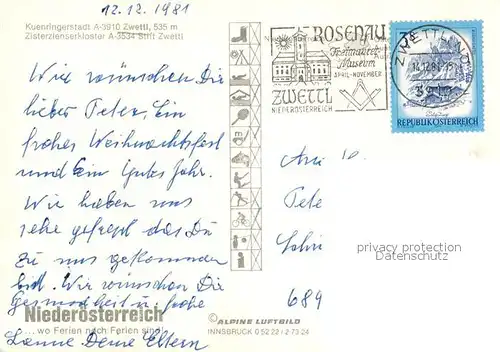 12.12.1981
Kuenringerstadt A-3910 Zwettl, 535 m
Zisterzienserkloster A-3534 Stift Zwettl
Wir wünschen Dir
lieber Peter, Ein
frohes Weihnachtsfest
und Ein Gutes Jahr.
Wir haben uns
sehr gefreut das Du
zu uns gekommen
bist. Wir wünschen Dir
Gesundheit u. frohe
Deine Eltern
Niederösterreich
... wo Ferien noch Ferien sind
ROSENAU
Freimaurer
Museum
APRIL-NOVEMBER
ZWETTL
NIEDERÖSTERREICH
ZWETTL
3910
REPUBLIK ÖSTERREICH
Pete
689
privacy protection
Datenschutz
© ALPINE LUFTBILD
INNSBRUCK 0 52 22 / 2 73-24